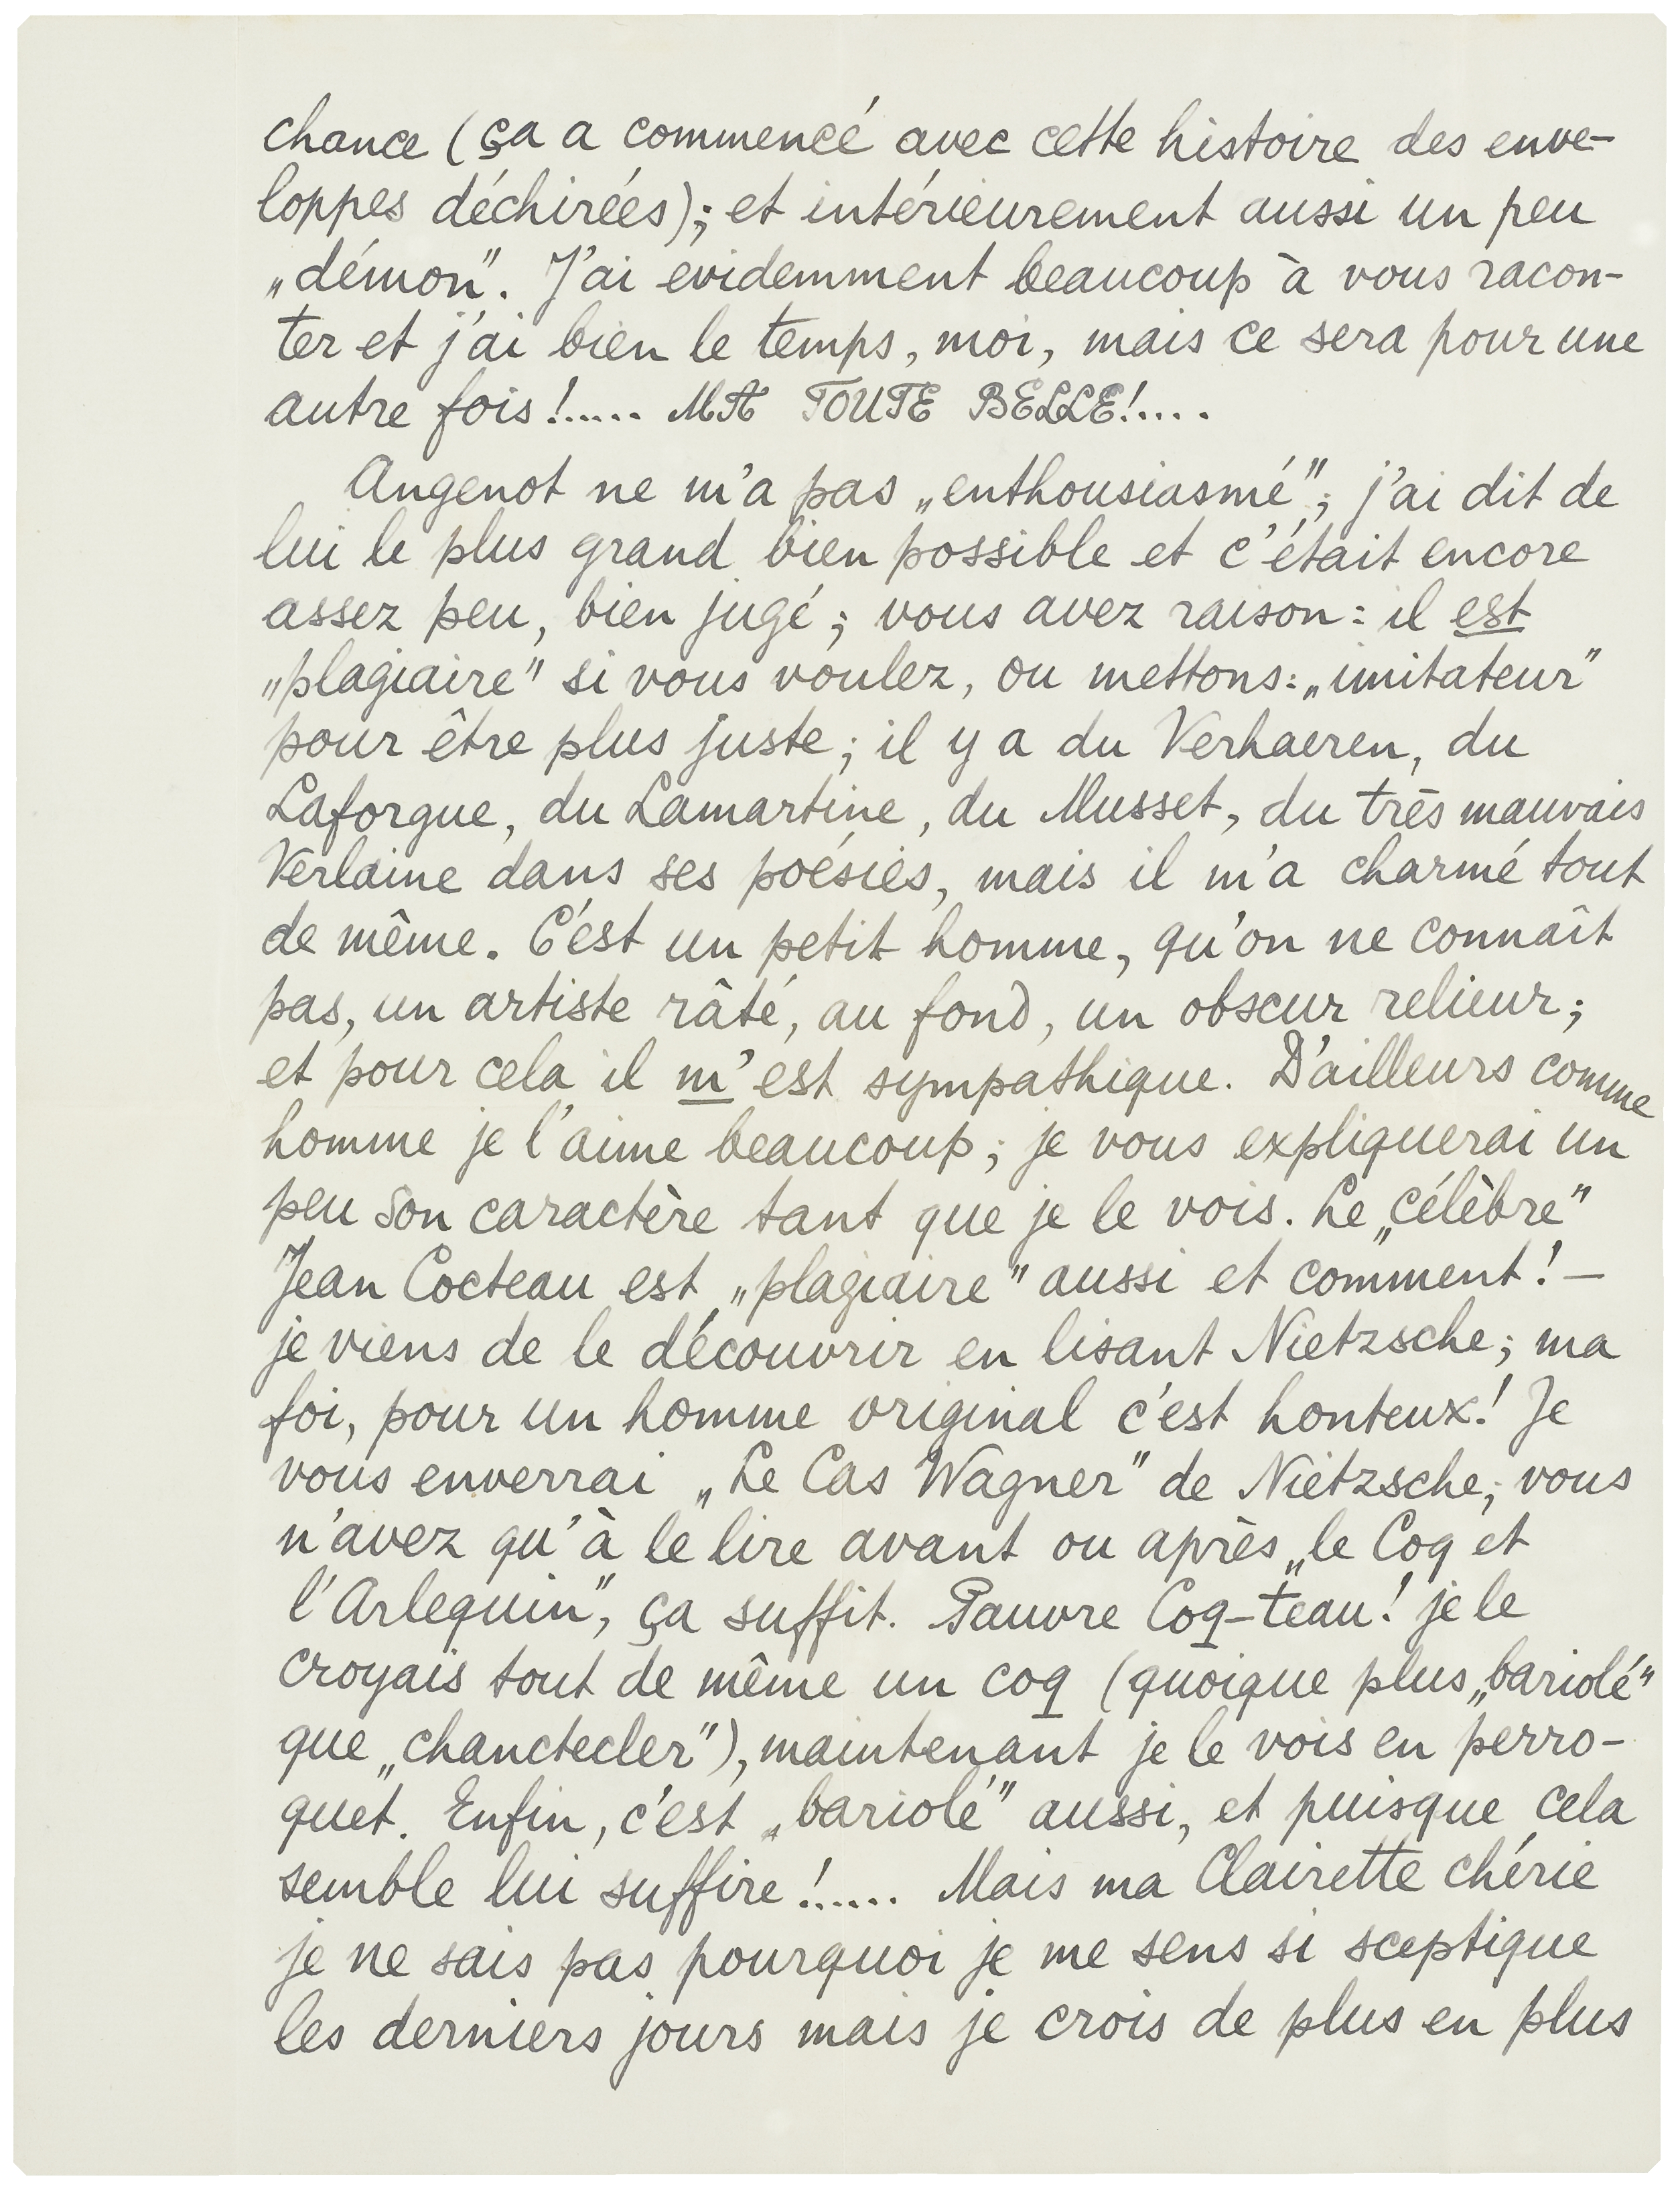 chance (ça a commencé avec cette histoire des enve-
loppes déchirées); et intérieurement aussi un peu
„démon". J'ai evidemment beaucoup à vous racon-
ter et j'ai bien le temps, moi, mais ce sera pour une
autre fois!..... MA TOUTE BELLE!....
Angenot ne m'a pas „enthousiasmé"; j'ai dit de
lui le plus grand bien possible et c'était encore
assez peu, bien jugé; vous avez raison: il est
„plagiaire" si vous voulez, ou mettons: „imitateur"
pour être plus juste; il y a du Verhaeren, du
Laforgue, du Lamartine, du Musset, du très mauvais
Verlaine dans ses poésies, mais il m'a charmé tout
de même. C'est un petit homme, qu'on ne connaît
pas, un artiste râté, au fond, un obscur relieur;
et pour cela il m'est sympathique. D'ailleurs comme
homme je l'aime beaucoup; je vous expliquerai un
peu son caractère tant que je le vois. Le „célèbre"
Jean Cocteau est „plagiaire" aussi et comment! –
je viens de le découvrir en lisant Nietzsche; ma
foi, pour un homme original c'est honteux! Je
vous enverrai „Le Cas Wagner" de Nietzsche; vous
n'avez qu'à le lire avant ou après „le Coq et
l'Arlequin", ça suffit. Pauvre Coq-teau! je le
croyais tout de même un coq (quoique plus „bariolé"
que „chanctecler"), maintenant je le vois en perro-
quet. Enfin, c'est „bariolé" aussi, et puisque cela
semble lui suffire!..... Mais ma Clairette chérie
je ne sais pas pourquoi je me sens si sceptique
les derniers jours mais je crois de plus en plus